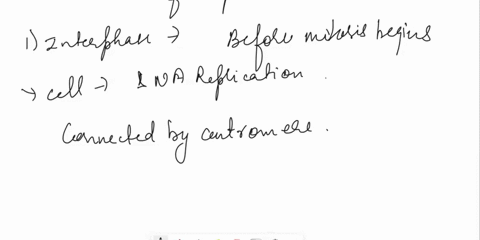 1) Interphase → Before mitosis begins
→ cell → DNA Replication.
Connected by centromere.